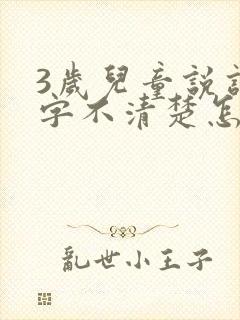 3歲兒童說
字不清楚怎
亂世小王子